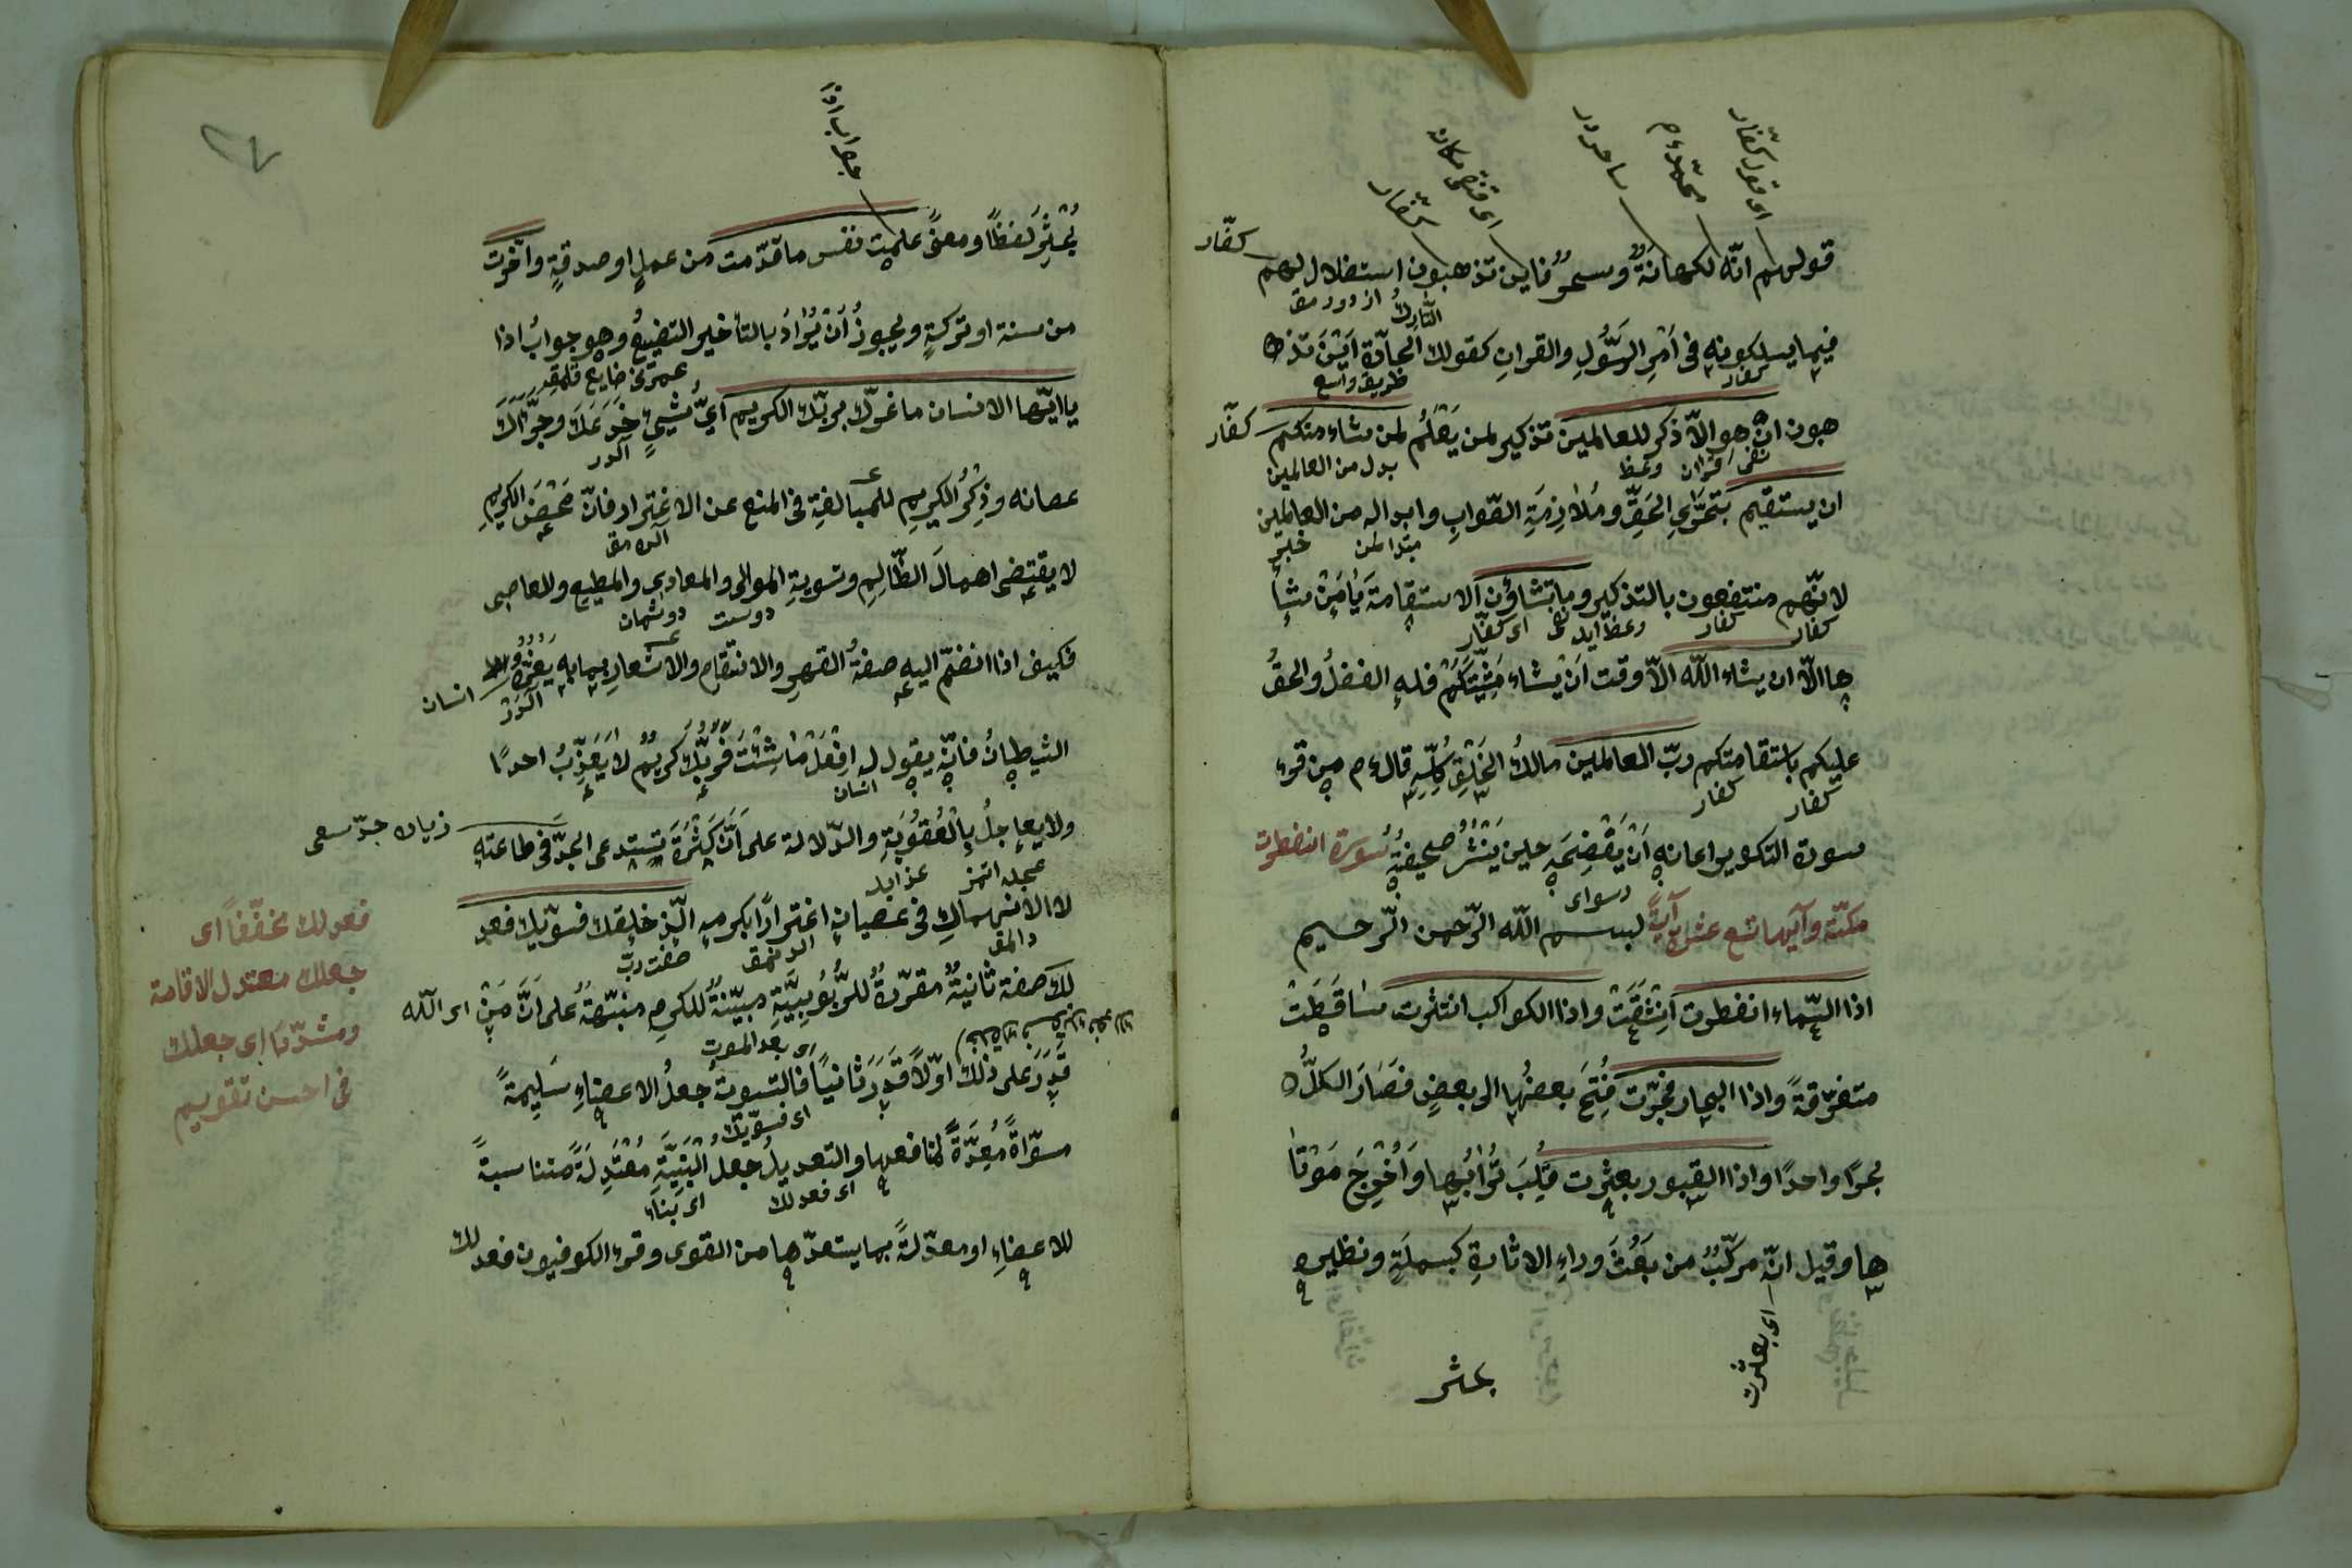 اى قول كفّار
محمّد ع م
ساحردر
كفّار
كفّار
قولهم انّه لكهانةٌ وسحرٌ فاين تذهبون استضلال لهم
التارك
فيما يسلكونه فى اَمْرِ الرّسُولِ والقرانِ كقولك لتارك الجادّة اَيْنَ تذ
كفّار طريق واسع
هبون ان هو الّا ذكر للعالمين تذكير لمن يَعْلَمُ لمن شاء منكم
كفّار
نفى قران وعظ بدل من العالمين
ان يستقيم بتحرّىِ الحَقِّ ومُلازمَةِ الصّوابِ وابداله من العالمين
خبر
لانّهم منتفعون بالتذكير وما تشاؤُن الاستقامةَ يَا مَنْ يشأ
كفار كفار وعظ ايله اى كفّار
ها الّا ان يشاء اللّه الّا وقت اَنْ يشاء مَشِيَّتَكُمْ فله الفضلُ والحقُ
عليكم باستقامتكم ربّ العالمين مالكُ الخَلْقِ كُلِّهِ قال ع م من قرء
كفار كفار
سورة التكوير اعاذه اَنْ يَفْضَحَه حين يَنْشُرُ صحيفته سُورة انفطرت
رسواى
مكّيّة وآيها تسع عشر آيةً بسم اللّه الرّحمن الرّحيم
اذا السّماء انفطرت اِنْشَقَّتْ واذا الكواكب انتثرت تساقَطَتْ
متفرّقةً واذا البحار فجّرت فُتِحَ بعضُها الى بعضٍ فصَارَ الكلُّ
بحرًا واحدًا واذا القبور بعثرت قُلِبَ تُرابُها وَاُخْرِجَ مَوْتا
ها وقيل انّه مركّبٌ من بَعَثَ وراءِ الاثارة كبسملَةٍ ونظيره
اى بعثرت
بحثر
٧
جواب اذا
بُحْثِرَ لفظًا ومعنىً علمت نفس ما قدّمت من عملٍ او صدقةٍ واخّرت
من سنة او تركةٍ ويجوزُ اَنْ يُرادَ بالتأخير التضييعُ وهو جوابُ اذا
عمرنى ضايع قلمقدر
يا ايّها الانسان ما غرّك بربّك الكريم اىُّ شيئٍ خدَعَكَ وجرّأكَ
آلدر
عصيانه وذِكْرُ الكريمِ للمبالغةِ فى المنع عن الاغترار فانّ مَحْضَ الكرمِ
لا يقتضى اهمالَ الظّالِمِ وتسويةِ الموالى والمعادى والمطيع والعاصى
دوست دوشمان
فكيف اذا انضمّ اليه صفةُ القهرِ والانتقام والاشعارِ بما به يَغُرُّه
انسان
الشيطانُ فانّه يقول له اِفْعَلْ ما شِئْتَ فَرَبُّكَ كريمٌ لا يُعَذِّبُ احدًا
انسان
ولا يعاجلُ بالْعُقُوبَةِ والدّلالة على اَنَّ كَثْرَةَ تستدعى الجدَّ فى طاعته
زياده جدّ سعى
عجله اتمز عذابله
لا الانهماكِ فى عصيانه اغترارًا بكرمه الّذى خلقك فسوّيك فعد
صفت ربّ
لكَ صفة ثانيةٌ مقرّرةٌ للرُّبُوبيّةِ مبيّنةٌ للكرمِ منبّهةٌ على اَنَّ مَنْ
اى اللّه
اى بعد الموت
قَدَرَ على ذلك اوّلاً قَدَرَ ثانيًا فالتسويتُ جعلُ الاعضاءِ سَلِيمةً
اى فسوّيك
مسوّاةً مُعدَّةً لمنافعها والتعديلُ جعل الْبُنِيَّةِ مُعْتَدِلَةً متناسبةً
اى فعدلك اى بناء
للاعضاءِ او معدّلةً بما يستعدّها من القوى وقرء الكوفيون فعدلك
فعدلك مخفّفًا اى
جعلك معتدل الاقامة
ومشدّدًا اى جعلك
فى احسن تقويم